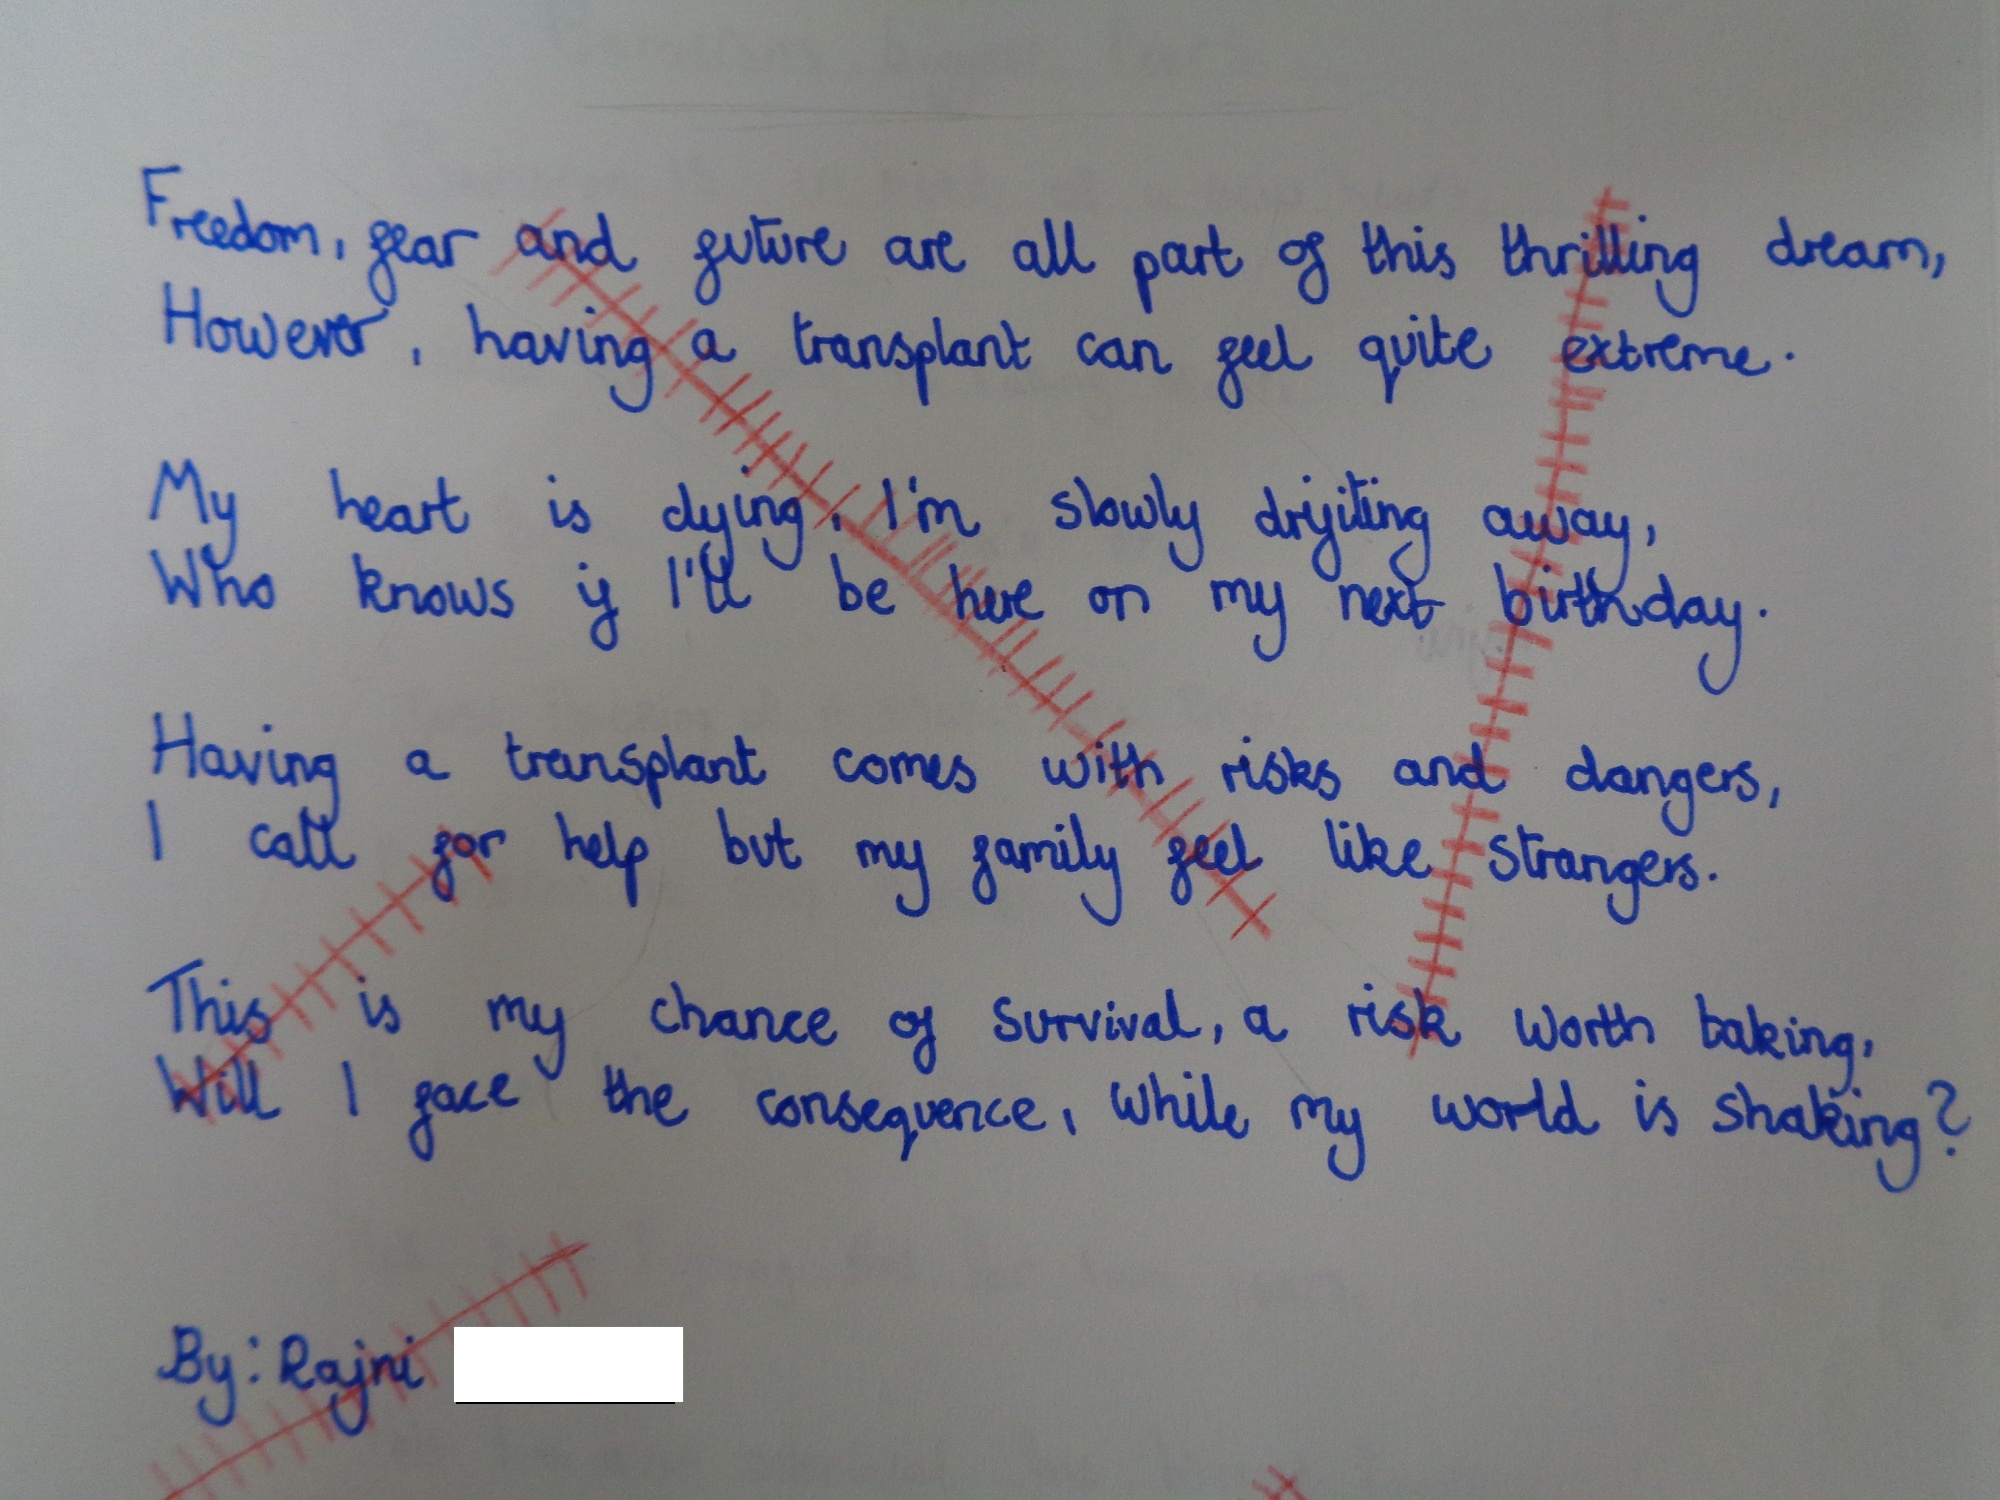 Freedom, fear and future are all part of this thrilling dream,
However, having a transplant can feel quite extreme.
My heart is dying, I'm slowly drifting away,
Who knows if I'll be here on my next birthday.
Having a transplant comes with risks and dangers,
I call for help but my family feel like strangers.
This is my chance of survival, a risk worth taking,
Will I face the consequence, while my world is shaking?
By: Rajni